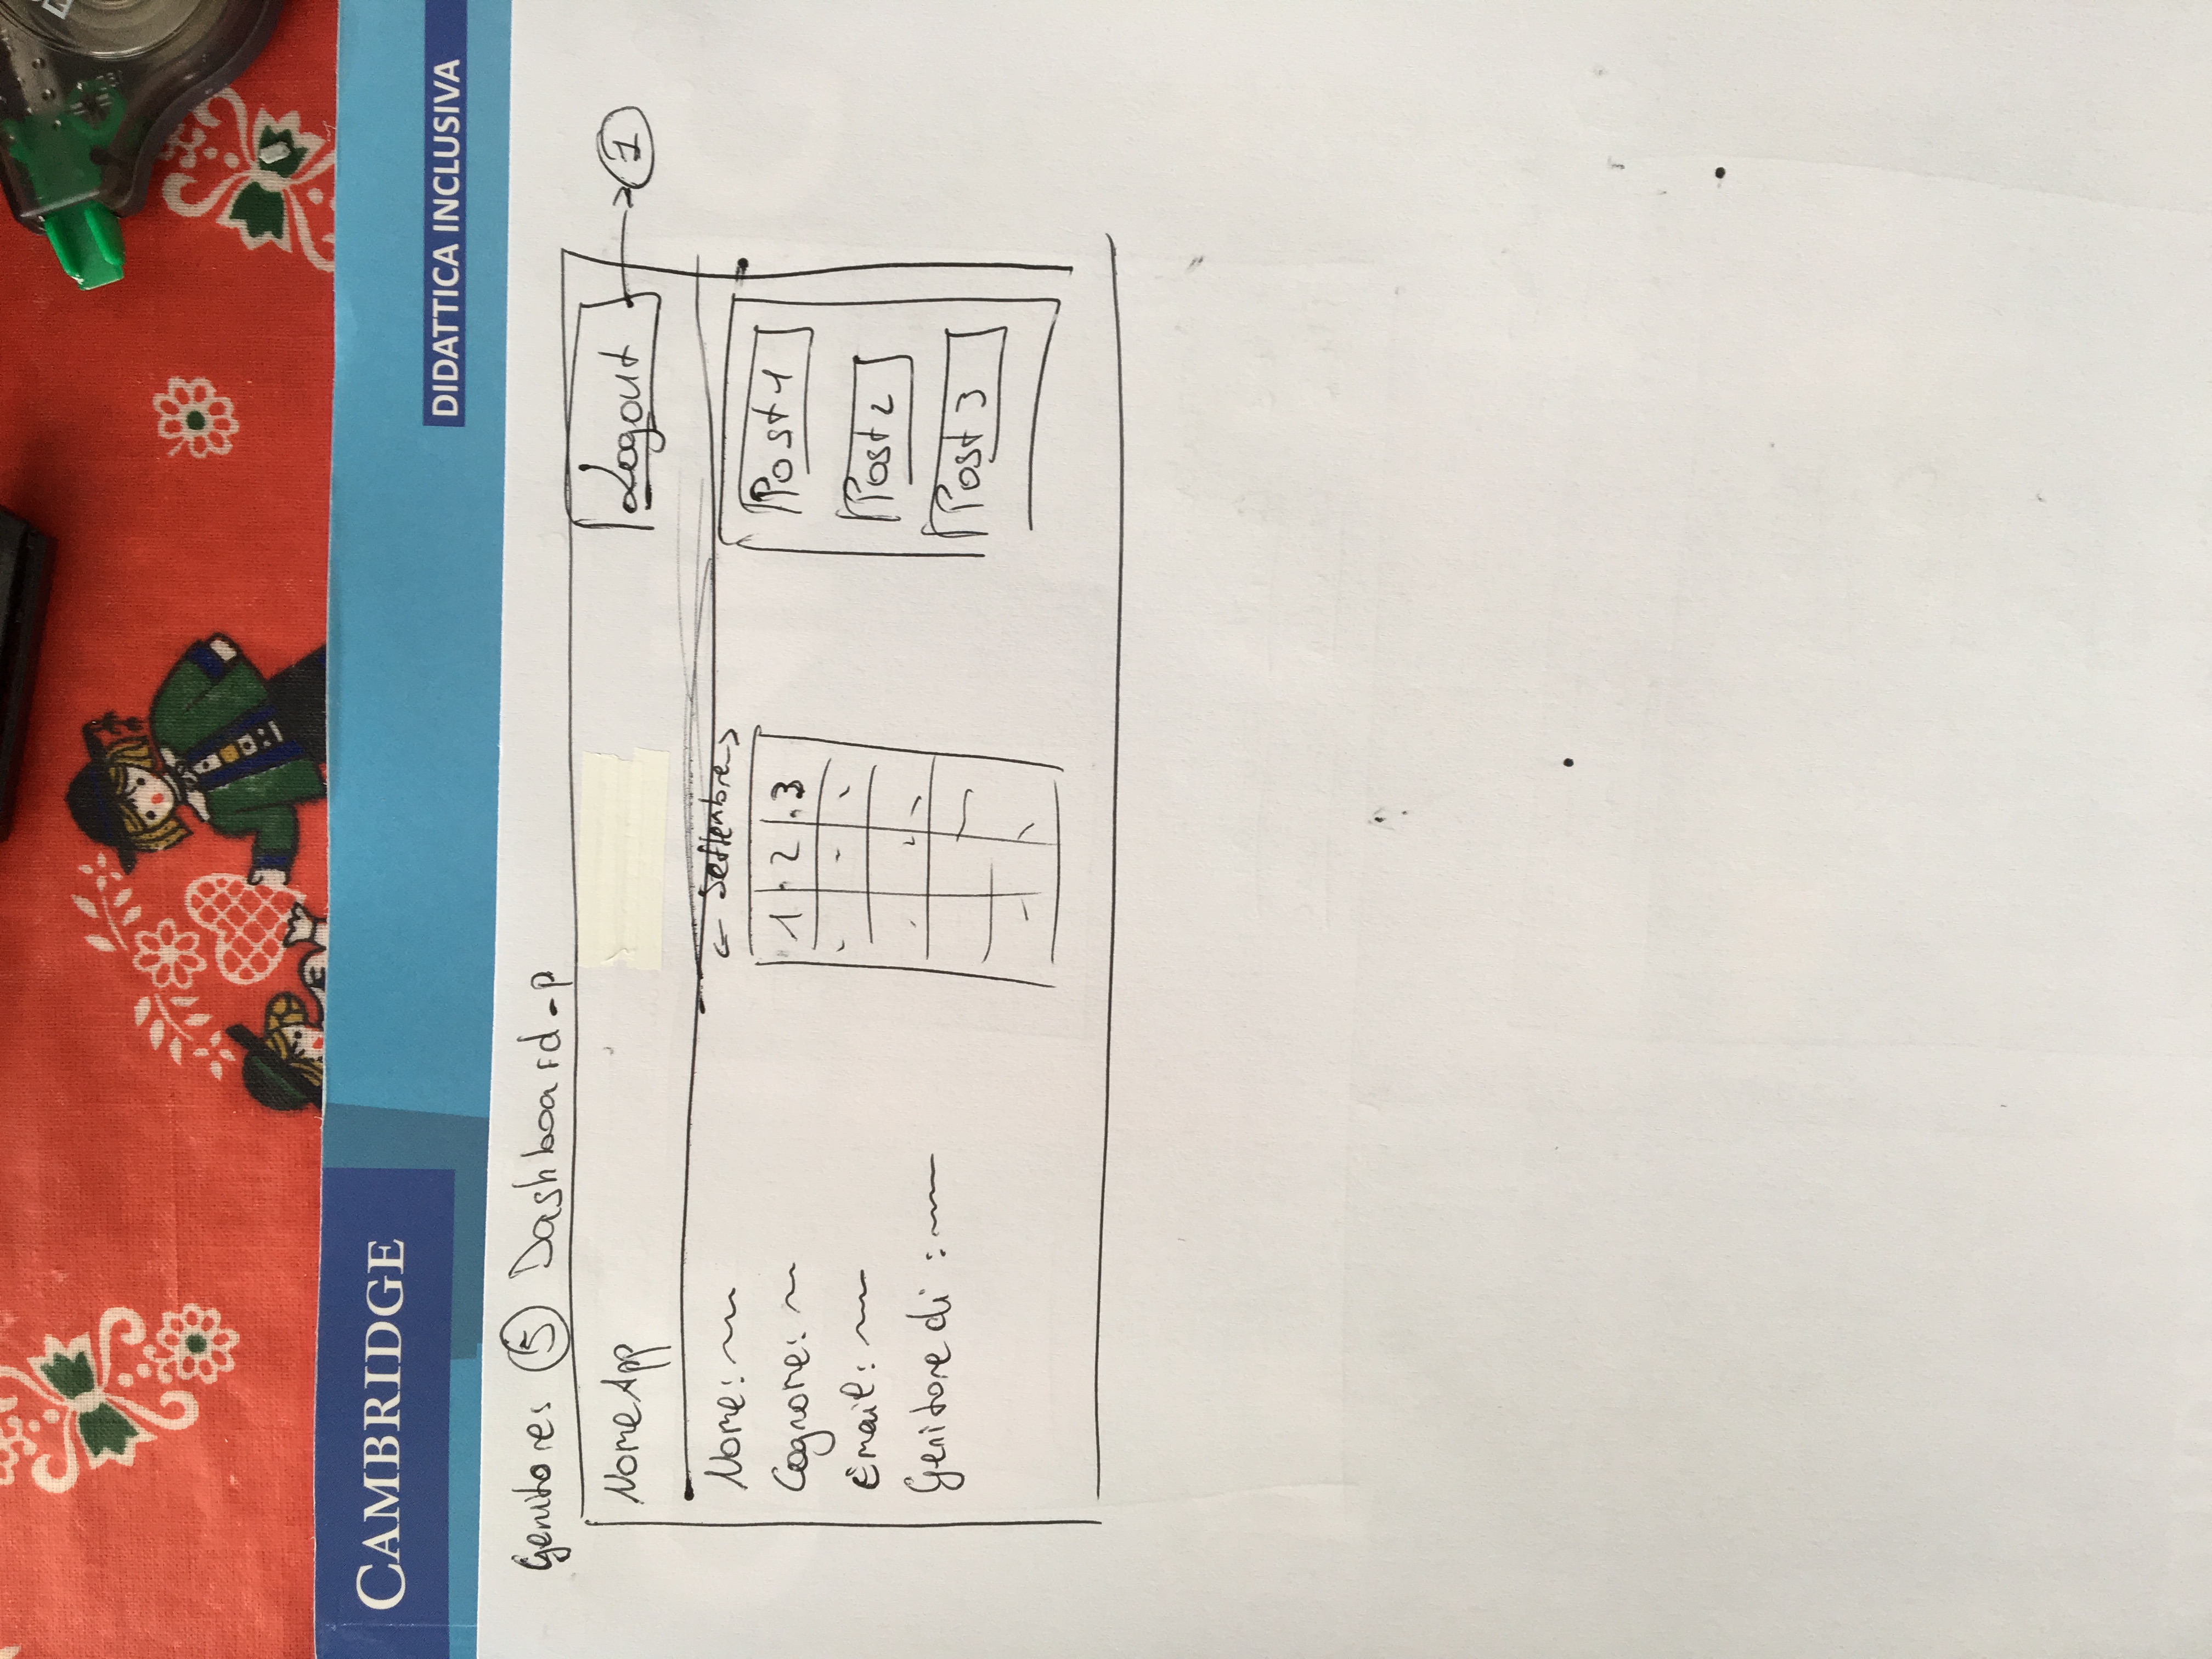 CAMBRIDGE
DIDATTICA INCLUSIVA
Genitores 5 Dashboard-p
NomeApp
Logout → 1
Nome:
Cognome:
Email:
Genitore di :
← Settembre →
1 2 3
Post 1
Post 2
Post 3